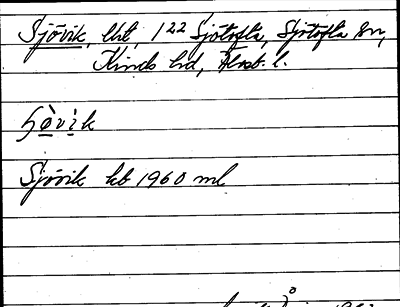 Sjövik, lht, 1²² Sjötofta, Sjötofta sn,
Kinds hd, Älvsb. l.
ɧø̀vìk
Sjövik kb 1960 ml